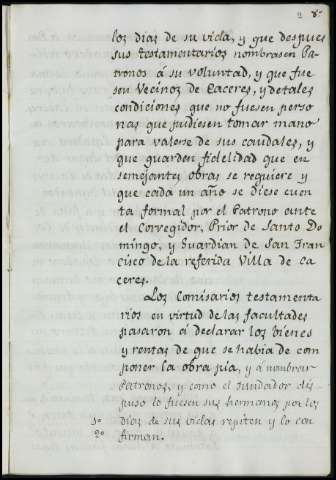 2 8º
los dias de su vida, y que despues
sus testamentarios nombrasen Pa
tronos á su voluntad, y que fue
sen Vecinos de Caceres, y detales
condiciones que no fuesen perso
nas que pudiesen tomar mano
para valerse de sus caudales, y
que guarden fidelidad que en
semejantes obras se requiere y
que cada un año se diese cuen
ta formal por el Patrono ante
el Corregidor, Prior de Santo Do
mingo, y Guardian de San Fran
cisco de la referida Villa de Ca
ceres.
Los Comisarios testamenta
rios en virtud de las facultades
pasaron á declarar los bienes
y rentas de que se habia de com
poner la obra pia, y á nombrar
Patronos, y como el fundador dis
puso lo fuesen sus hermanos por los
1º dias de sus vidas repiten y lo con
2º firman.